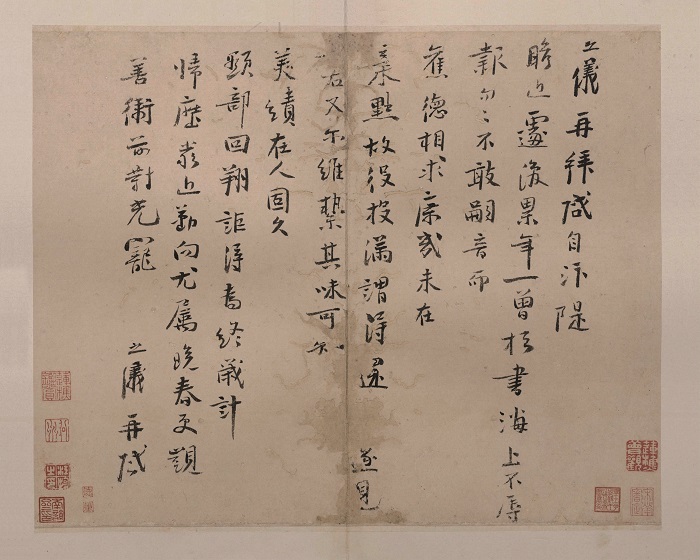 之儀再拜啟自汴隄
瞻近處後累年一曾於書海上不辱
報勿勿不敢嗣音而
舊德相求庶或未在
棄黜故役投滿謂得還 遂見
右又不維縶其味可知
美績在人固久
顯部回翔詎得為終歲計
歸歷奏近勤向尤屬晚春更覬
善衛前對光寵 之儀再啟